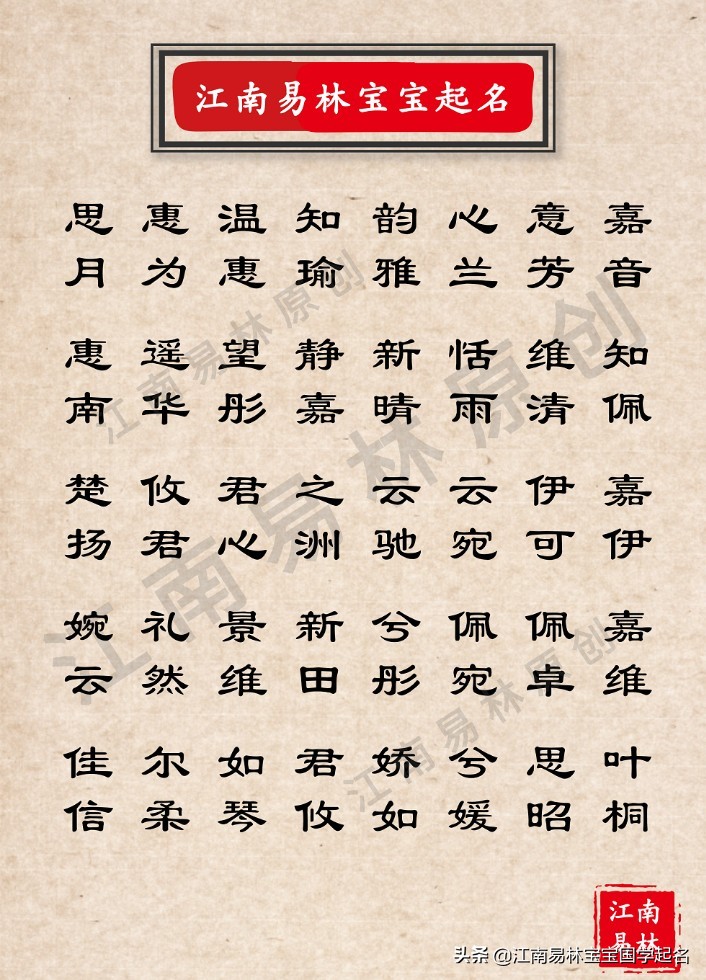 江南易林宝宝起名
思 惠 温 知 韵 心 意 嘉
月 为 惠 瑜 雅 兰 芳 音
惠 遥 望 静 新 恬 维 知
南 华 彤 嘉 晴 雨 清 佩
楚 攸 君 之 云 云 伊 嘉
扬 君 心 洲 驰 宛 可 伊
婉 礼 景 新 兮 佩 佩 嘉
云 然 维 田 彤 宛 卓 维
佳 尔 如 君 娇 兮 思 叶
信 柔 琴 攸 如 媛 昭 桐
江南易林原创
江南易林原创
江南易林原创
江南
易林
头条 @江南易林宝宝国学起名